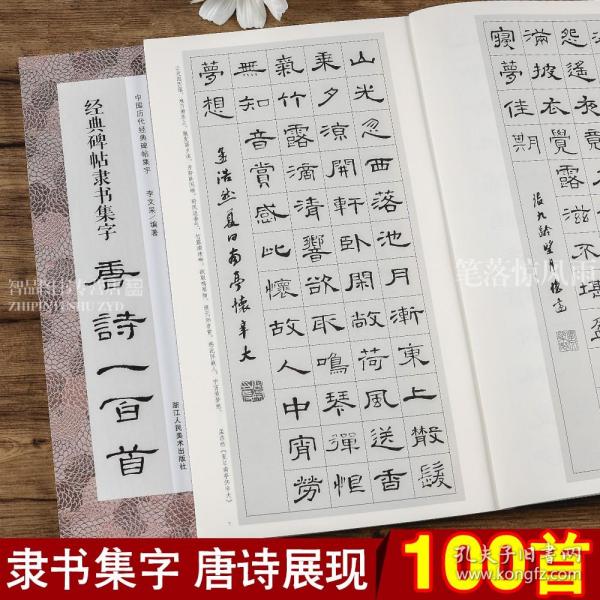 山光忽西落池月漸東上散髮
乘夕涼開軒卧閑敞荷風送香
氣竹露滴清響欲取鳴琴彈恨
無知音賞感此懷故人中宵勞
夢想
孟浩然夏日南亭懷辛大
怨遙
滿披衣覺露滋不堪盈
寢夢佳期
張九齡望月懷遠
中国历代经典碑帖集字
李文采/编著
经典碑帖隶书集字
唐詩一百首
浙江人民美术出版社
ZHIPINTUSHU ZYD
笔落惊风雨
隶书集字 唐诗展现 100首
孔夫子旧书网
www.kongfz.com